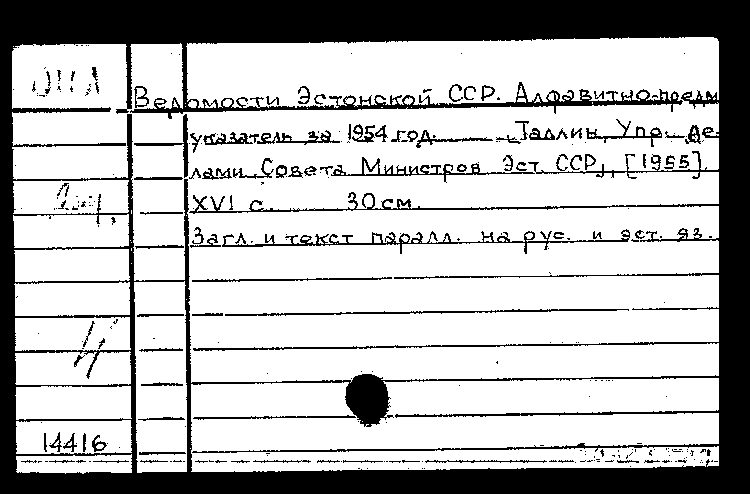 Ведомости Эстонской ССР. Алфавитно-предм
указатель за 1954 год. — Таллин, Упр. де-
лами Совета Министров Эст. ССР, [1955].
XVI с. 30 см.
Загл. и текст паралл. на рус. и эст. яз.
14416